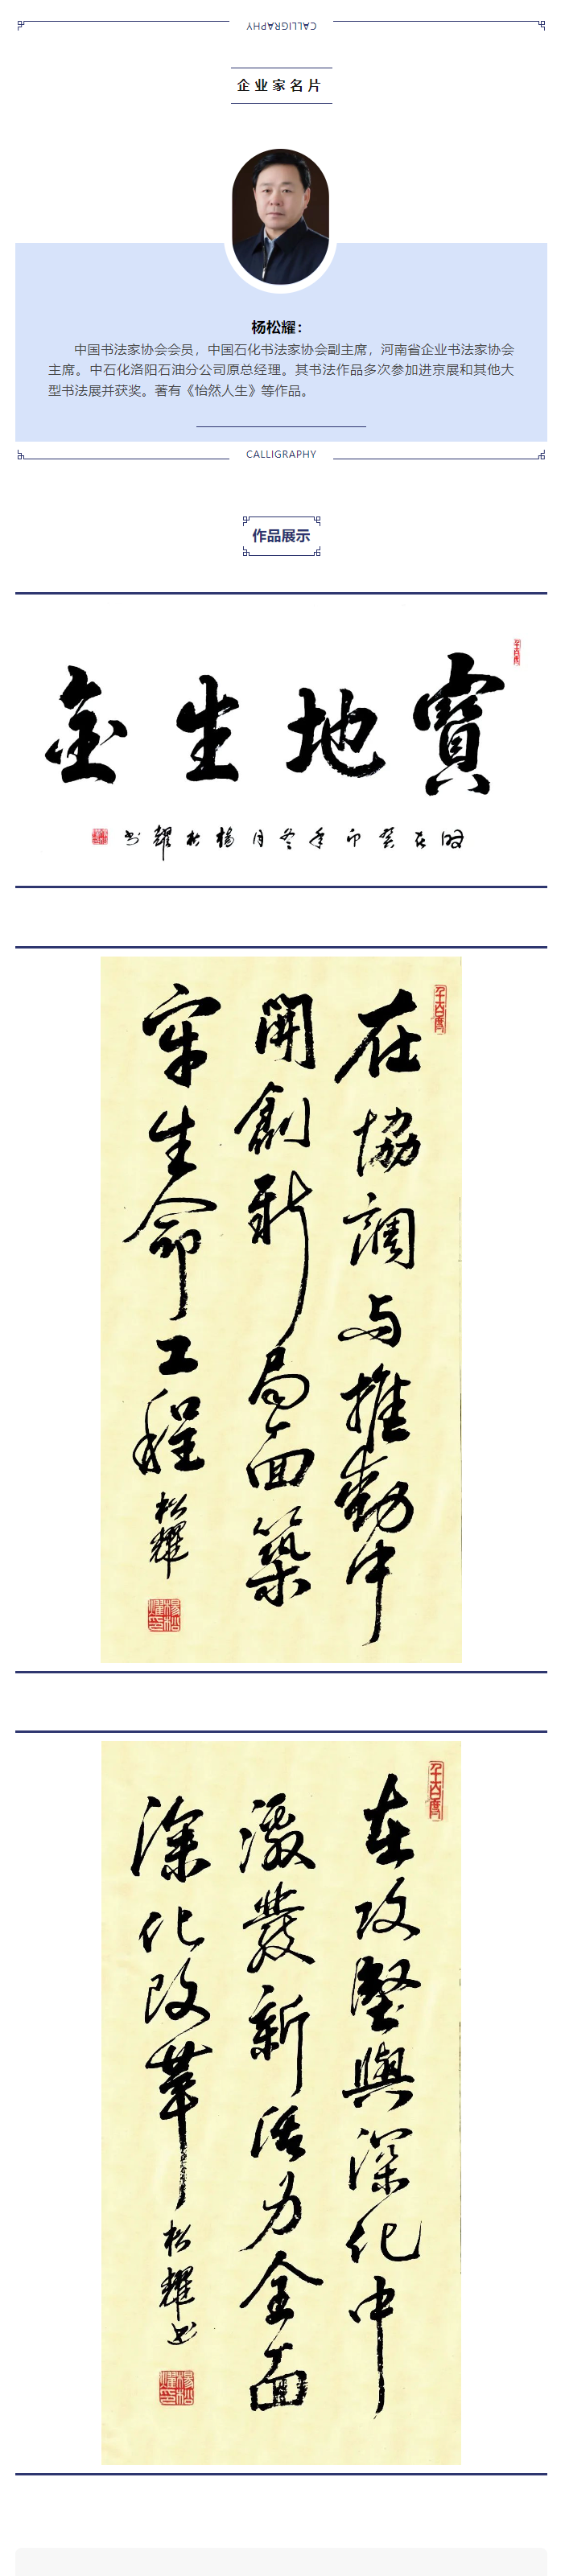 CALLIGRAPHY
企业家名片
杨松耀：
中国书法家协会会员，中国石化书法家协会副主席，河南省企业书法家协会
主席。中石化洛阳石油分公司原总经理。其书法作品多次参加进京展和其他大
型书法展并获奖。著有《怡然人生》等作品。
CALLIGRAPHY
作品展示
寶地生金
时在癸卯年冬月楊松耀书
在協調与推動中
開創新局面築
牢生命工程
松耀
在攻堅與深化中
激發新活力全面
深化改革
松耀书